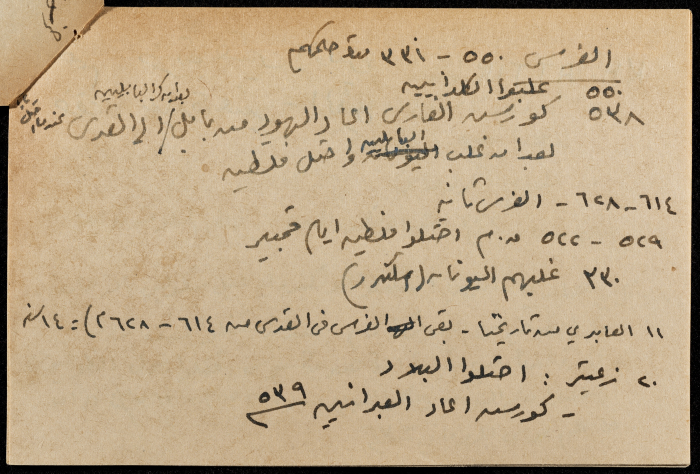 الفرس ٥٥٠ - ٣٣١ مدة حكمهم
٥٥٠ غلبوا الكلدانيين
٥٣٨ كورس الفارسي اعاد اليهود من بابل / الى القدس
بعد ان غلب البابليين واحتل فلسطين
٦١٤ - ٦٢٨ - الفرس ثانية
٥٢٩ - ٥٢٢ ق.م احتلوا فلسطين ايام قمبيز
٣٣٠ غلبهم اليونان (اسكندر)
١١ العابدي من تاريخنا - بقي الفرس في القدس من ٦١٤ - ٦٢٨م) = ١٤ سنة
٢٠ زعيتر : احتلوا البلاد
- كورس اعاد العبرانيين ٥٣٩